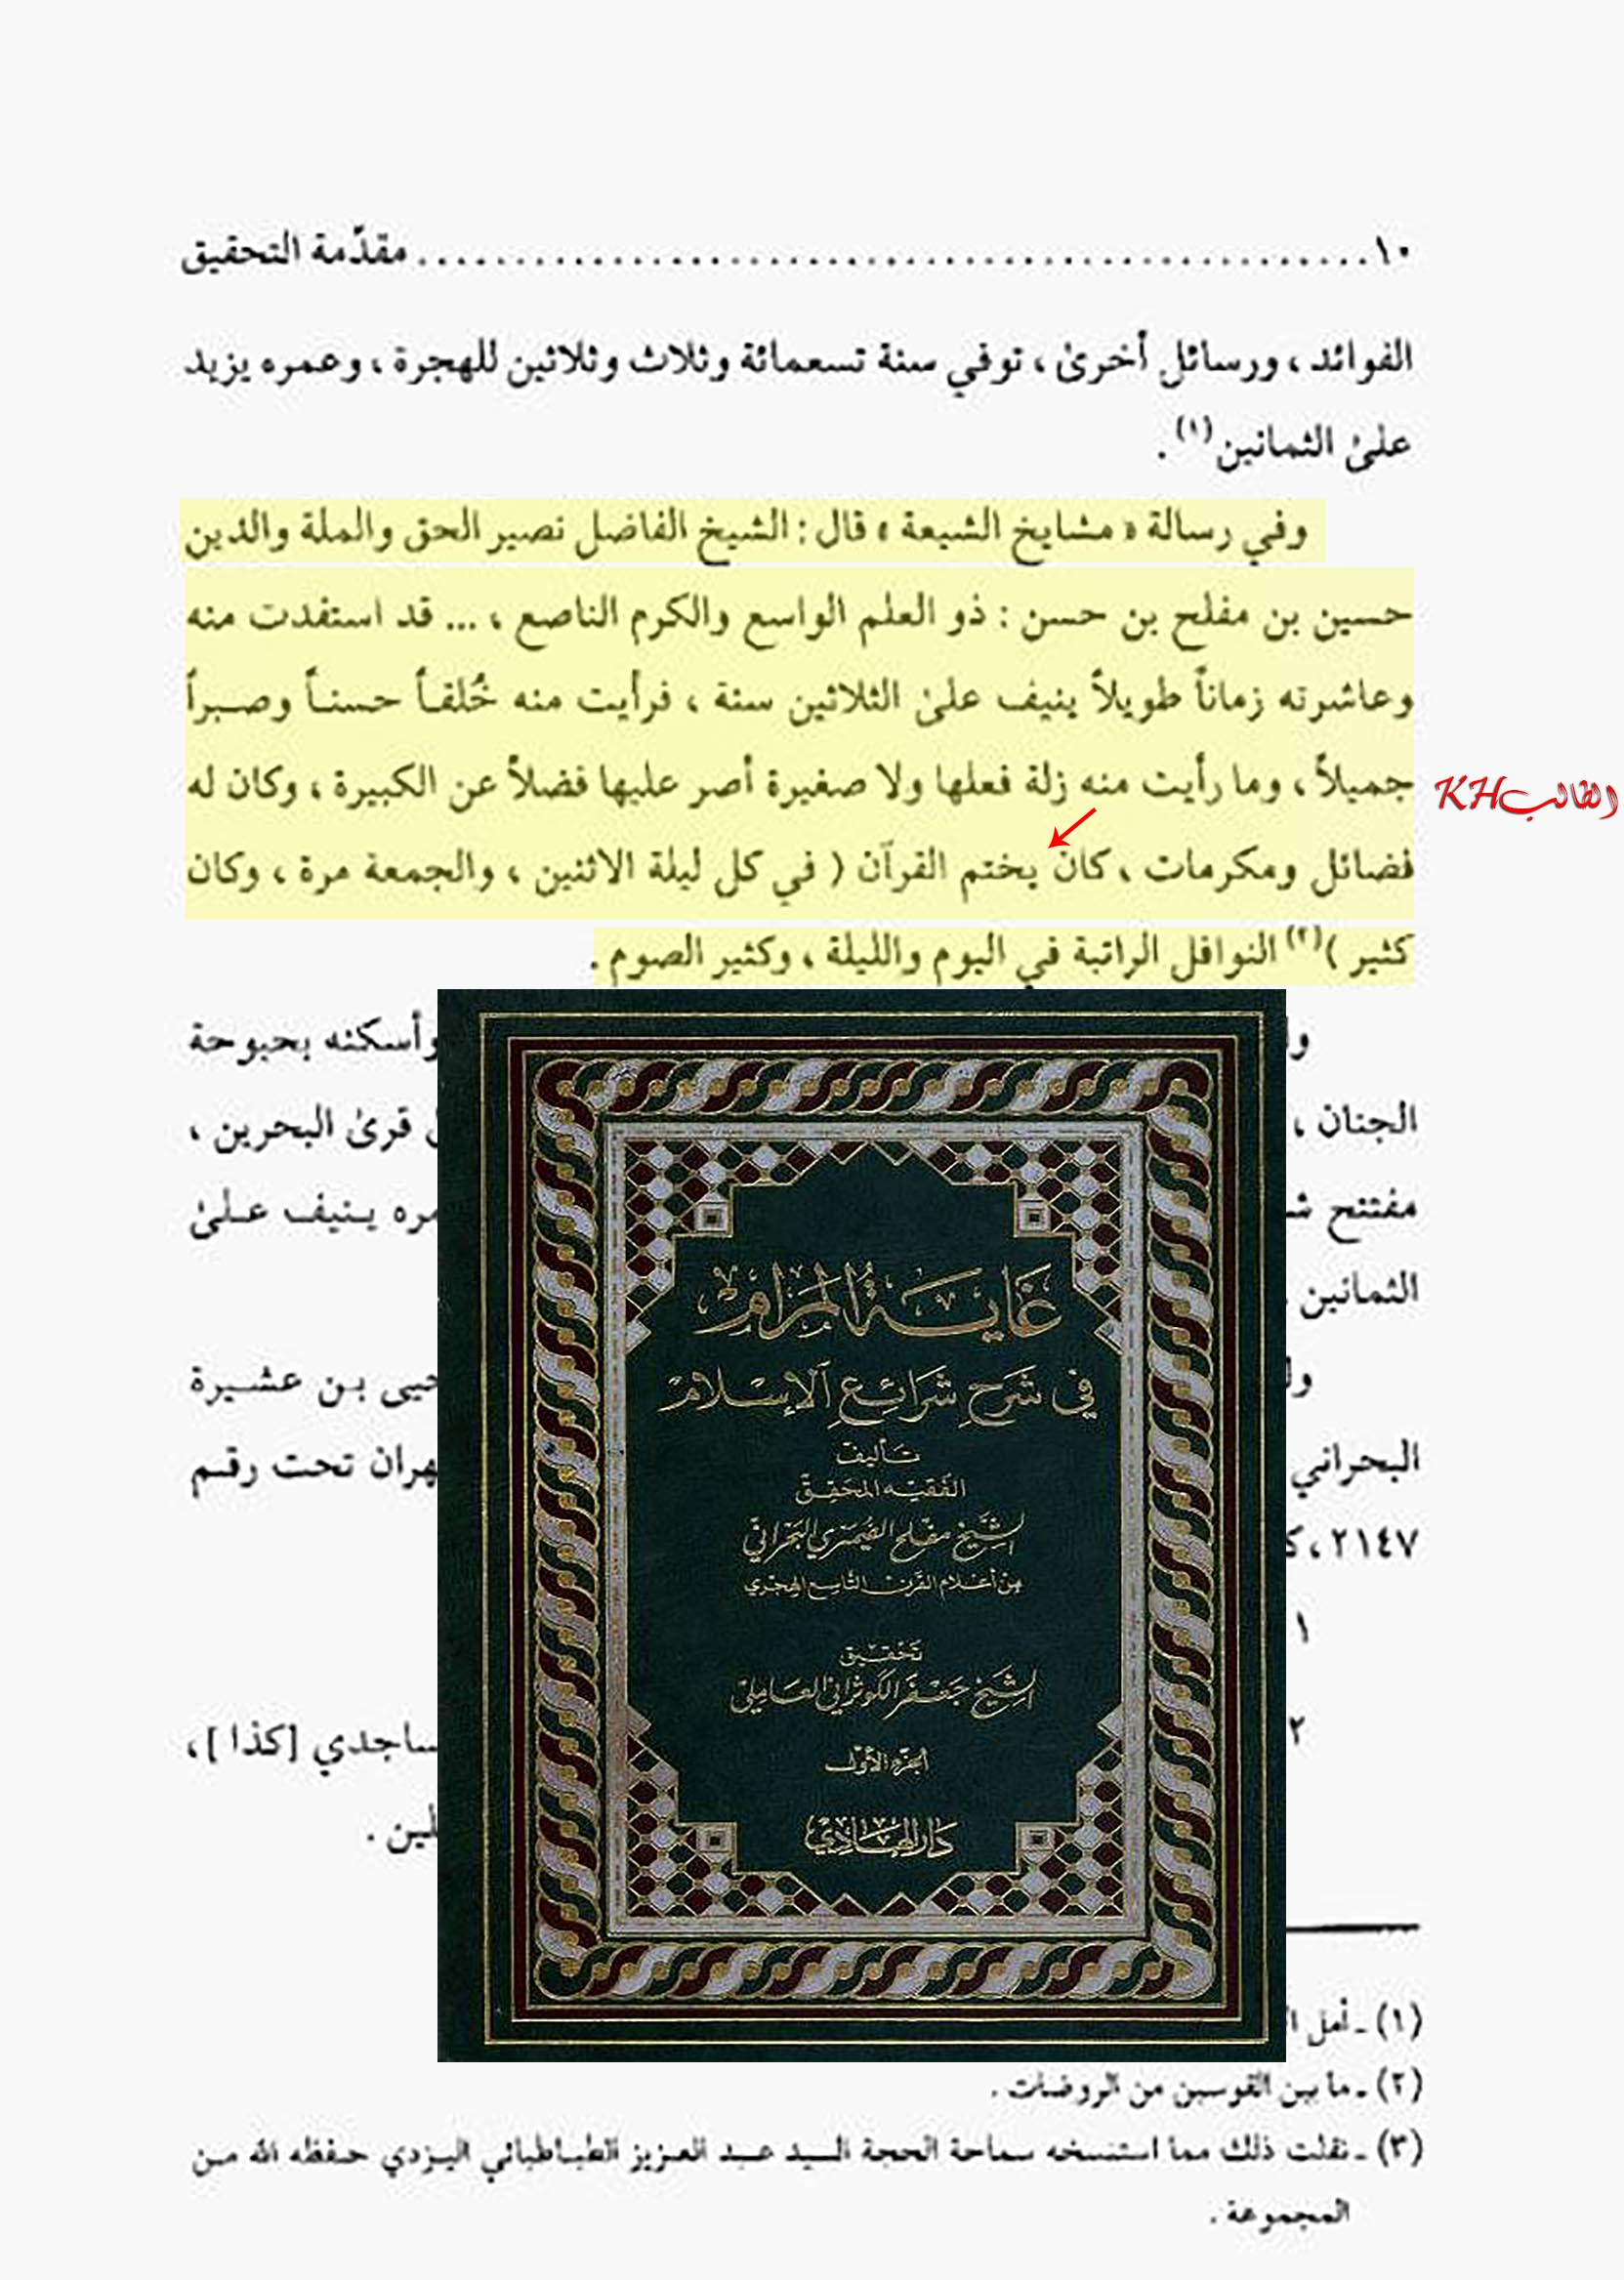 ١٠ ........................................ مقدّمة التحقيق
الفوائد ، ورسائل أخرىٰ ، توفي سنة تسعمائة وثلاث وثلاثين للهجرة ، وعمره يزيد
علىٰ الثمانين(١) .
وفي رسالة « مشايخ الشيعة » قال : الشيخ الفاضل نصير الحق والملة والدين
حسين بن مفلح بن حسن : ذو العلم الواسع والكرم الناصع ، ... قد استفدت منه
وعاشرته زماناً طويلاً ينيف علىٰ الثلاثين سنة ، فرأيت منه خُلقاً حسناً وصبراً
جميلاً ، وما رأيت منه زلة فعلها ولا صغيرة أصر عليها فضلاً عن الكبيرة ، وكان له
الطالب KH
فضائل ومكرمات ، كان يختم القرآن ( في كل ليلة الاثنين ، والجمعة مرة ، وكان
كثير )(٢) النوافل الراتبة في اليوم والليلة ، وكثير الصوم .
وأسكنه بحبوحة
الجنان ، قرىٰ البحرين ،
مفتتح ينيف علىٰ
الثمانين
بن عشيرة
البحراني تحت رقم
٢١٤٧ ،
١
٢ [كذا] ،
غاية المرام
في شرح شرائع الإسلام
تأليف
الفقيه المحقق
الشيخ مفلح الصيمري البحراني
من أعلام القرن التاسع الهجري
تحقيق
الشيخ جعفر الكوثراني العاملي
الجزء الأول
دار الهادي
(١) ـ أمل
(٢) ـ ما بين القوسين من الروضات .
(٣) ـ نقلت ذلك مما استنسخه سماحة الحجة السيد عبد العزيز الطباطبائي اليزدي حفظه الله من
المجموعة .